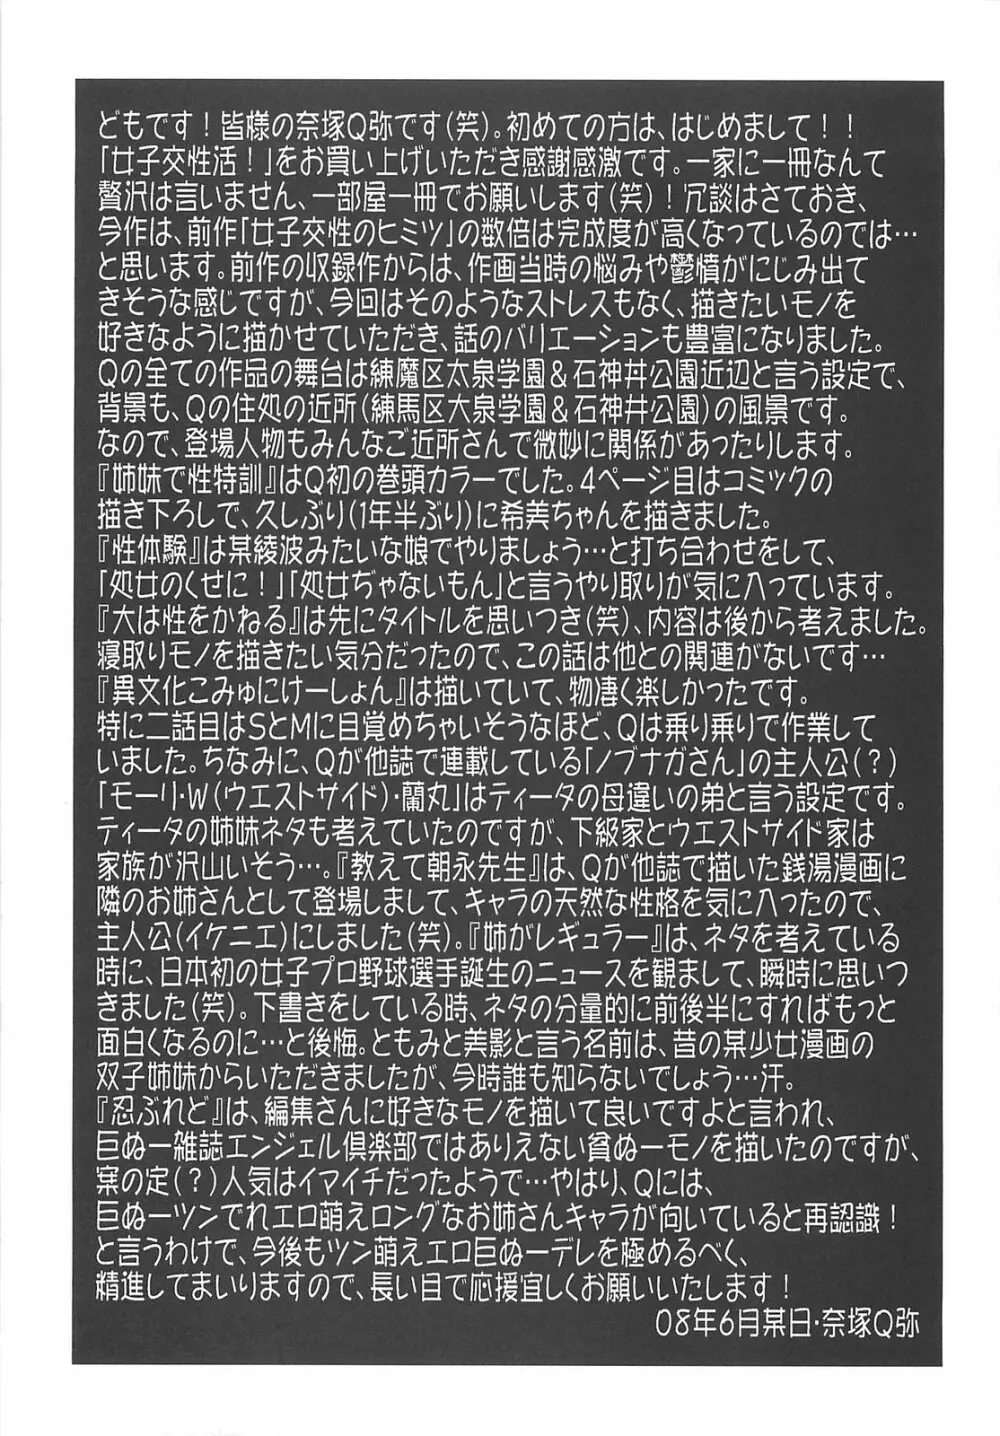 どもです！皆様の奈塚Q弥です(笑)。初めての方は、はじめまして！！
「女子交性活！」をお買い上げいただき感謝感激です。一家に一冊なんて
贅沢は言いません、一部屋一冊でお願いします(笑)！冗談はさておき、
今作は、前作「女子交性のヒミツ」の数倍は完成度が高くなっているのでは…
と思います。前作の収録作からは、作画当時の悩みや鬱憤がにじみ出て
きそうな感じですが、今回はそのようなストレスもなく、描きたいモノを
好きなように描かせていただき、話のバリエーションも豊富になりました。
Qの全ての作品の舞台は練魔区太泉学園＆石神丼公園近辺と言う設定で、
背景も、Qの住処の近所(練馬区大泉学園＆石神井公園)の風景です。
なので、登場人物もみんなご近所さんで微妙に関係があったりします。
『姉妹で性特訓』はQ初の巻頭カラーでした。4ページ目はコミックの
描き下ろしで、久しぶり(1年半ぶり)に希美ちゃんを描きました。
『性体験』は某綾波みたいな娘でやりましょう…と打ち合わせをして、
「処女のくせに！」「処女ぢゃないもん」と言うやり取りが気に入っています。
『大は性をかねる』は先にタイトルを思いつき(笑)、内容は後から考えました。
寝取りモノを描きたい気分だったので、この話は他との関連がないです…
『異文化こみゅにけーしょん』は描いていて、物凄く楽しかったです。
特に二話目はSとMに目覚めちゃいそうなほど、Qは乗り乗りで作業して
いました。ちなみに、Qが他誌で連載している「ノブナガさん」の主人公(？)
「モーリ・W(ウエストサイド)・蘭丸」はティータの母違いの弟と言う設定です。
ティータの姉妹ネタも考えていたのですが、下級家とウエストサイド家は
家族が沢山いそう…。『教えて朝永先生』は、Qが他誌で描いた銭湯漫画に
隣のお姉さんとして登場しまして、キャラの天然な性格を気に入ったので、
主人公(イケニエ)にしました(笑)。『姉がレギュラー』は、ネタを考えている
時に、日本初の女子プロ野球選手誕生のニュースを観まして、瞬時に思いつ
きました(笑)。下書きをしている時、ネタの分量的に前後半にすればもっと
面白くなるのに…と後悔。ともみと美影と言う名前は、昔の某少女漫画の
双子姉妹からいただきましたが、今時誰も知らないでしょう…汗。
『忍ぶれど』は、編集さんに好きなモノを描いて良いですよと言われ、
巨ぬー雑誌エンジェル倶楽部ではありえない貧ぬーモノを描いたのですが、
案の定(？)人気はイマイチだったようで…やはり、Qには、
巨ぬーツンでれエロ萌えロングなお姉さんキャラが向いていると再認識！
と言うわけで、今後もツン萌えエロ巨ぬーデレを極めるべく、
精進してまいりますので、長い目で応援宜しくお願いいたします！
08年6月某日・奈塚Q弥